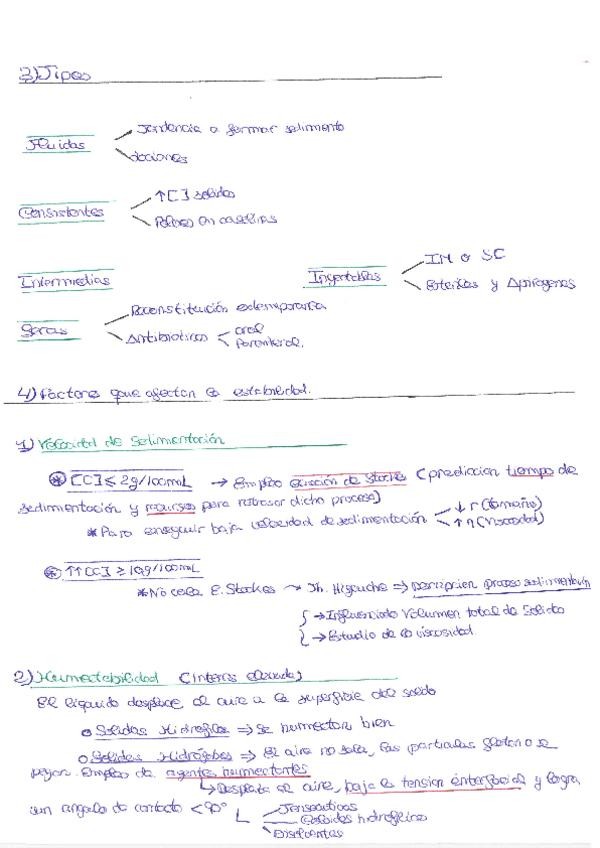 3) Tipos
Fluidas
Tendencia a formar sedimento
Lociones
Consistentes
↑[C] sólidos
Polvos en
Intermedias
Inyectables
IM o SC
Estériles y Apirógenas
Secas
Reconstitución extemporánea
Antibióticos
oral
Parenteral.
4) Factores que afectan la estabilidad.
1) Velocidad de Sedimentación
* [C] ≤ 2g/100mL → Empleo ecuación de Stockes (predicción tiempo de
sedimentación y recursos para retrasar dicho proceso)
* Para conseguir baja velocidad de sedimentación
↓ r (tamaño)
↑ η (viscosidad)
* ↑↑[C] ≥ 10g/100mL
* No cabe E. Stockes → Th. Higuchi ⇒ Descripción proceso sedimentación
→ Influenciado Volumen total de Sólido
→ Estudio de la viscosidad.
2) Humectabilidad (interás elevada)
El líquido desplaza al aire a la superficie del sólido
o Sólidos Hidrófilos ⇒ Se humectan bien
o Sólidos Hidrófobos ⇒ El aire no sale, las partículas flotan o se
pegan. Empleo de agentes humectantes
↳ Desplaza el aire, baja la tensión interfacial y logra
un ángulo de contacto < 90°
Tensoactivos
Coloides hidrofílico
Disolventes